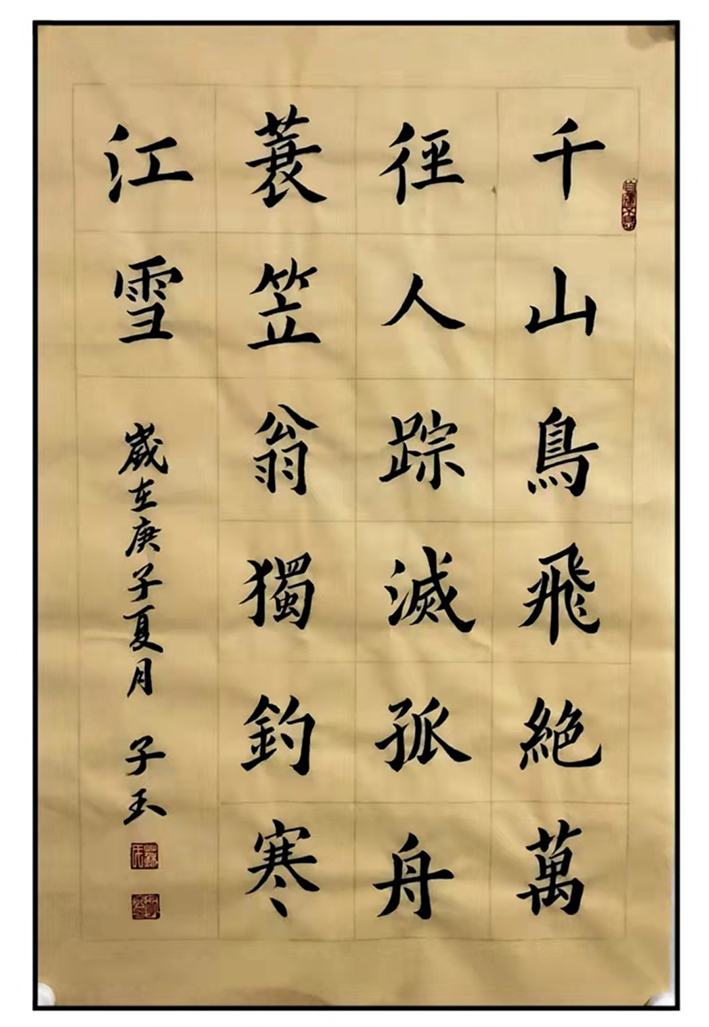 千山鳥飛絶萬
徑人踪滅孤舟
蓑笠翁獨釣寒
江雪
歲在庚子夏月 子玉